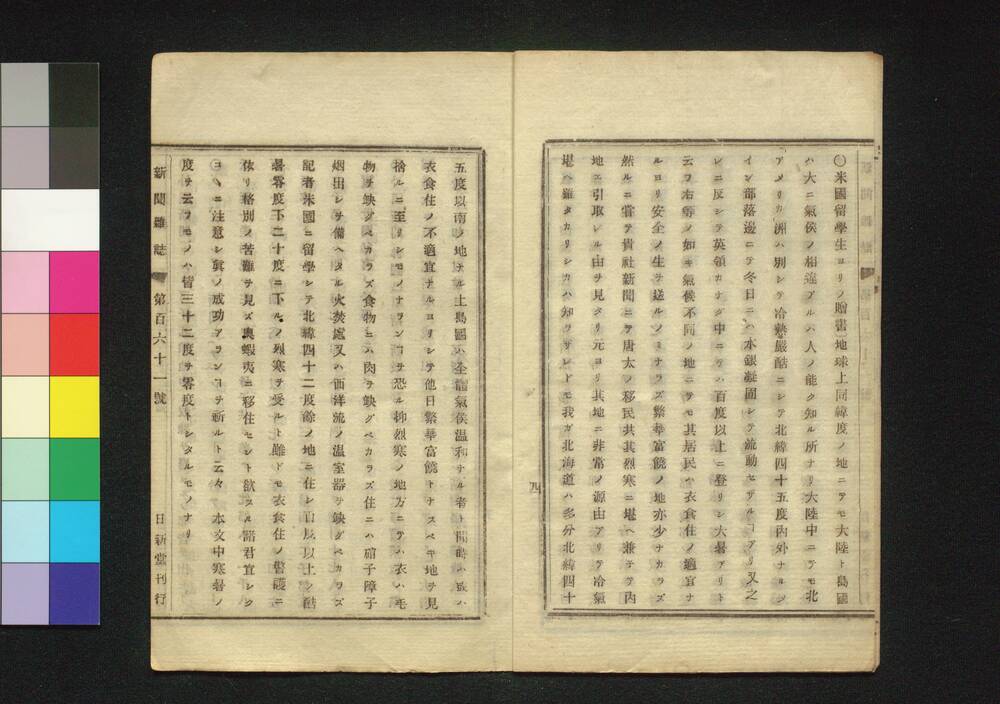 〇米國留學生ヨリノ贈書地球上同緯度ノ地ニテモ大陸ト島國
ハ大ニ氣侯ノ相違アルハ人ノ能ク知ル所ナリ大陸中ニテモ北
アメリカ洲ハ別シテ冷熱嚴酷ニシテ北緯四十五度內外ナルシ
イン部落邊ニテ冬日ニハ水銀凝固シテ流動セザルヿアリ又之
レニ反シテ英領カナダ中ニテハ百度以上ニ登リシ大暑アリト
云フ右等ノ如キ氣候不同ノ地ニテモ其居民ハ衣食住ノ適宜ナ
ルヨリ安全ノ生ヲ送ルノミナラズ繁華富饒ノ地亦少ナカラズ
然ルニ甞テ貴社新聞ニテ唐太ノ移民共其烈寒ニ堪ヘ兼テヲ內
地ニ引取レル由ヲ見タリ元ヨリ其地ニ非常ノ源由アリテ冷氣
堪ヘ難タカリシカハ知ラザレドモ我ガ北海道ハ多分北緯四十
四
五度以南ノ地ナル上島國ハ全體氣侯温和ナル者ト聞時ハ或ハ
衣食住ノ不適宜ナルヨリシテ他日繁華富饒トナスベキ地ヲ見
捨ルニ至リシモノナランヿヲ恐ル抑烈寒ノ地方ニテハ衣ハ毛
物ヲ缺グベカラズ食物ニハ肉ヲ缺グベカラズ住ニハ硝子障子
烟出シヲ備ヘタル火焚處又ハ西洋流ノ温室器ヲ缺グベカラズ
記者米國ニ留學シテ北緯四十二度餘ノ地ニ住シ百度以上ノ酷
暑零度下二十度ニ下ルノ烈寒ヲ受ルト雖ドモ衣食住ノ警護ニ
依リ格別ノ苦難ヲ見ズ輿蝦夷ニ移住セシト欲スル諸君宜シク
コヽニ注意シ眞ノ成功アランヿヲ祈ルト云々　本文中寒暑ノ
度ヲ云フモノハ皆三十二度ヲ零度トシタルモノナリ
新聞雜誌　第百六十一號　日新堂刊行